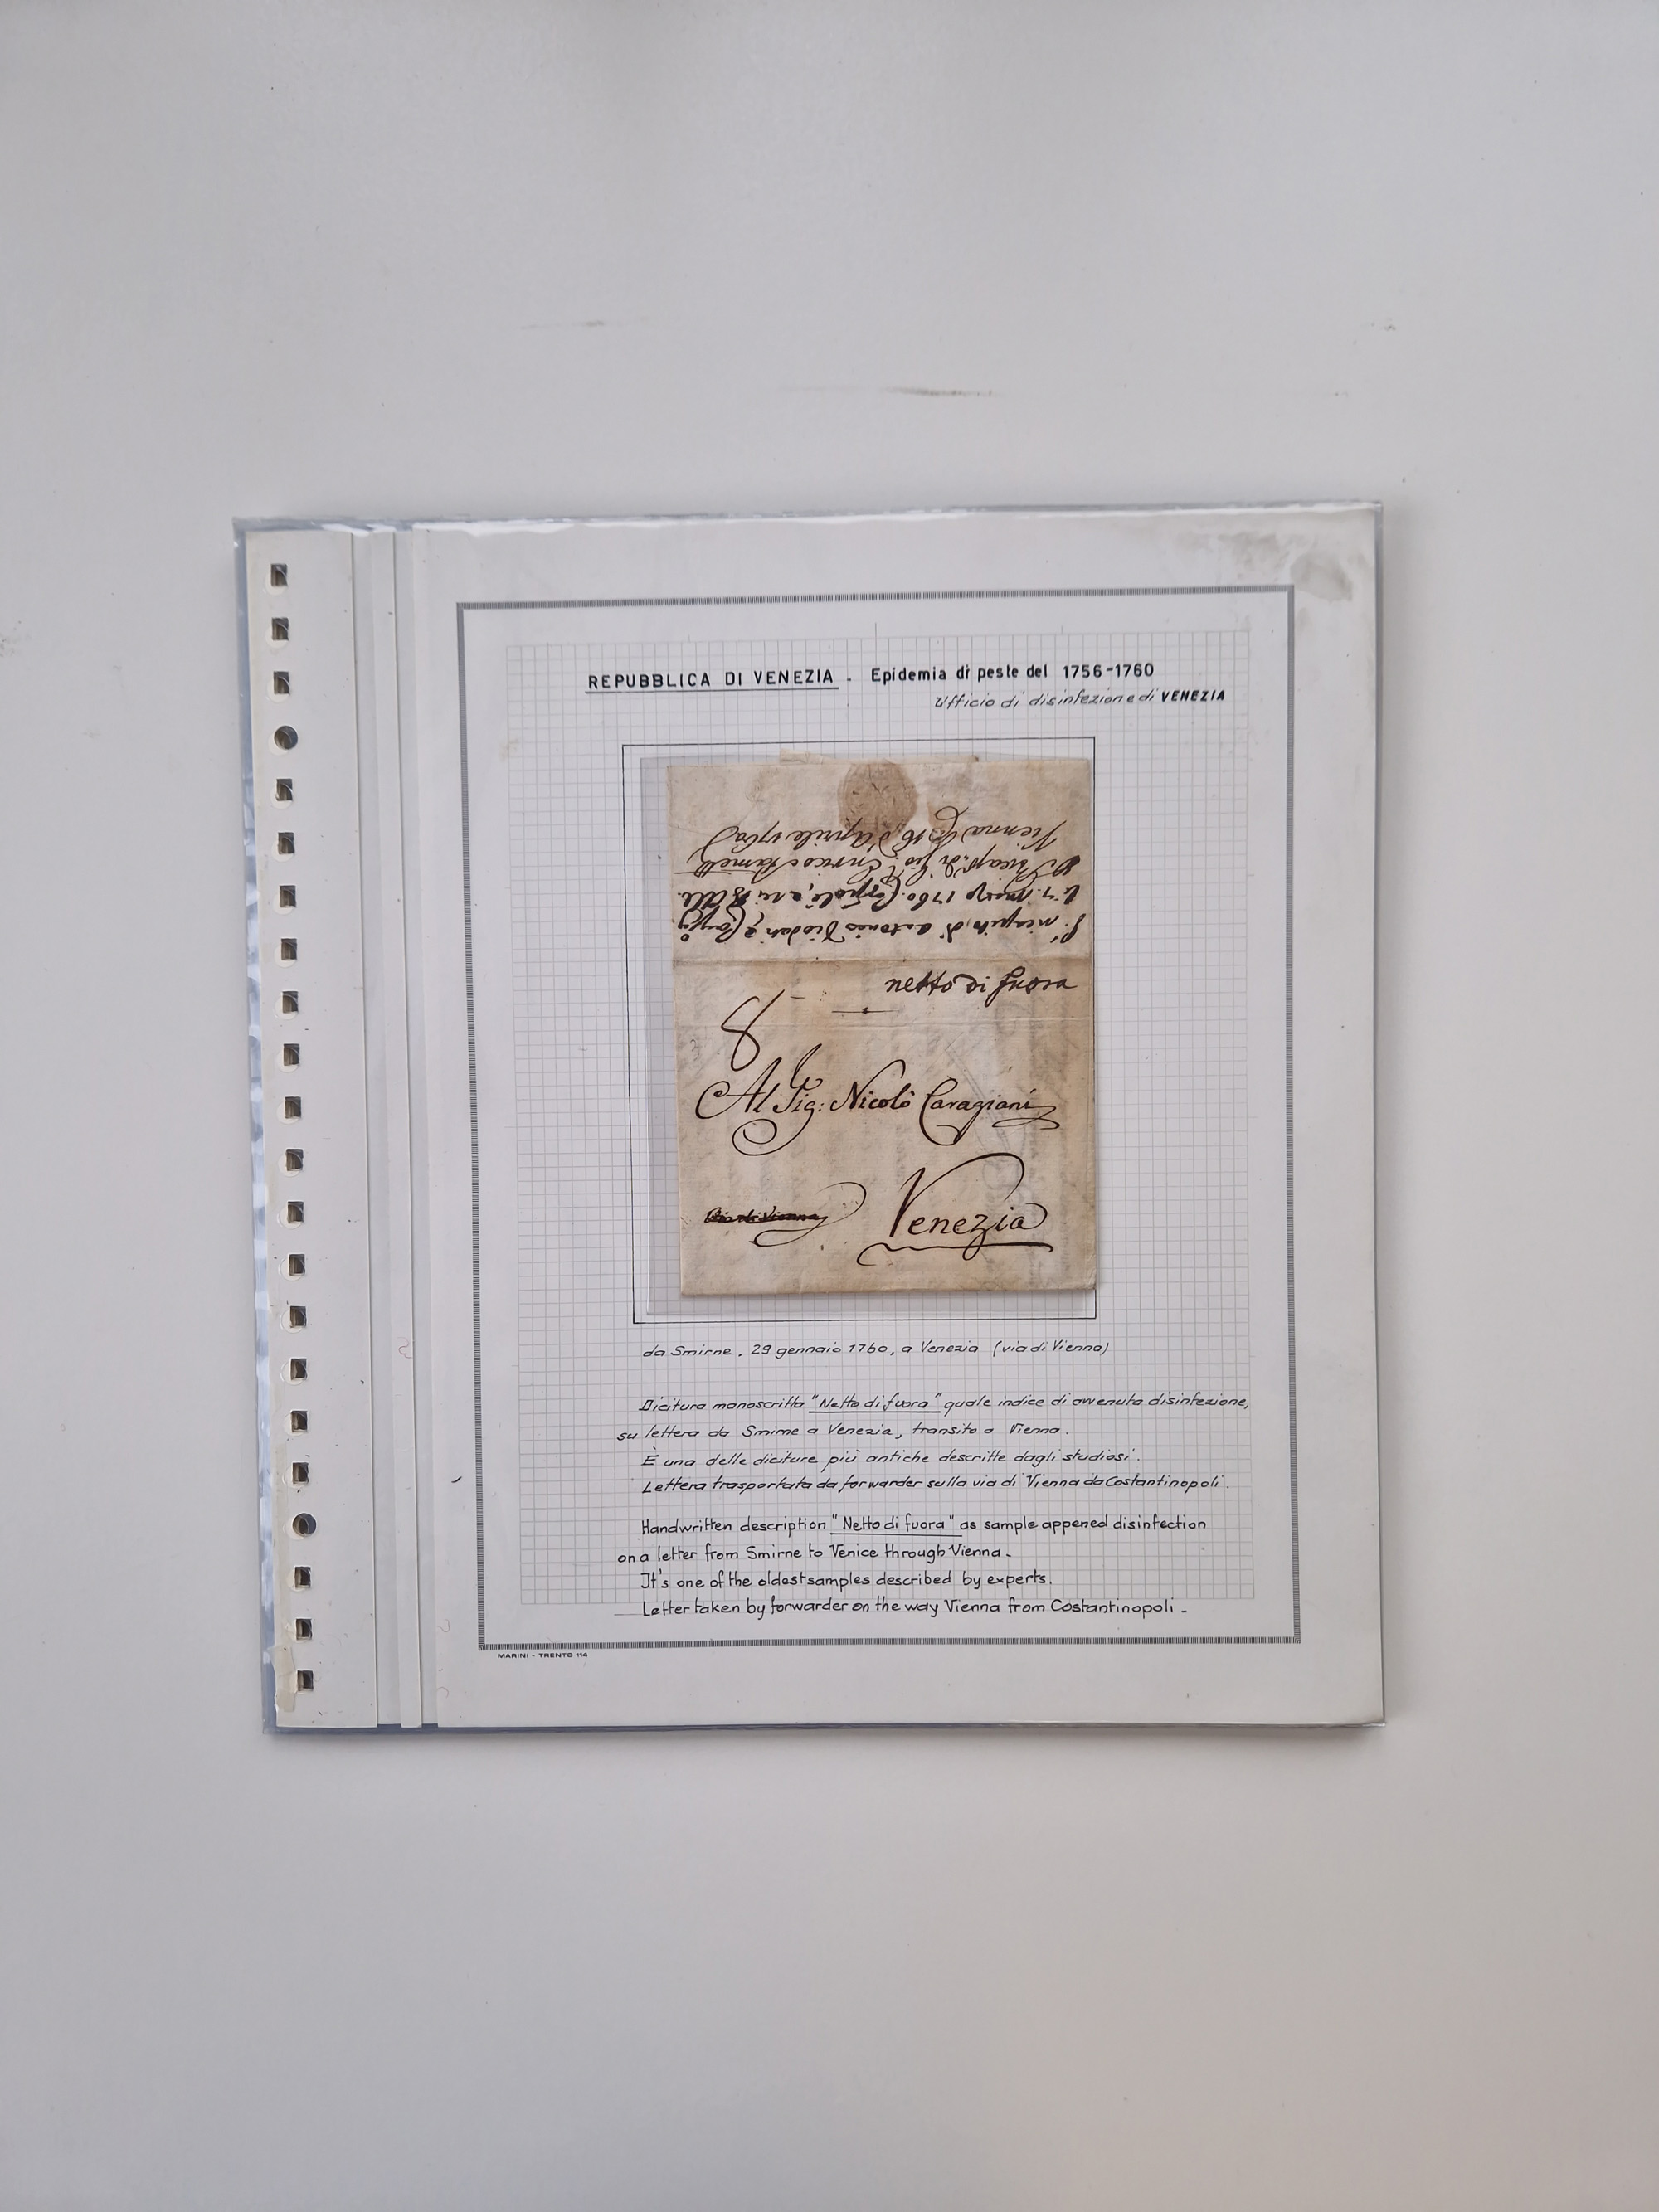 REPUBBLICA DI VENEZIA - Epidemia di peste del 1756-1760
Ufficio di disinfezione di VENEZIA
Vienna 16 d'Aprile 1760
di Gio. Enrico
1760.
d'Antonio
netto di fuora
8
Al Sig: Nicolò Caragiani
Via di Vienna
Venezia
da Smirne, 29 gennaio 1760, a Venezia (via di Vienna)
Dicitura manoscritta "Netto di fuora" quale indice di avvenuta disinfezione,
su lettera da Smirne a Venezia, transito a Vienna.
È una delle diciture più antiche descritte dagli studiosi.
Lettera trasportata da forwarder sulla via di Vienna da Costantinopoli.
Handwritten description "Netto di fuora" as sample appened disinfection
on a letter from Smirne to Venice through Vienna.
It's one of the oldest samples described by experts.
Letter taken by forwarder on the way Vienna from Costantinopoli.
MARINI - TRENTO 114